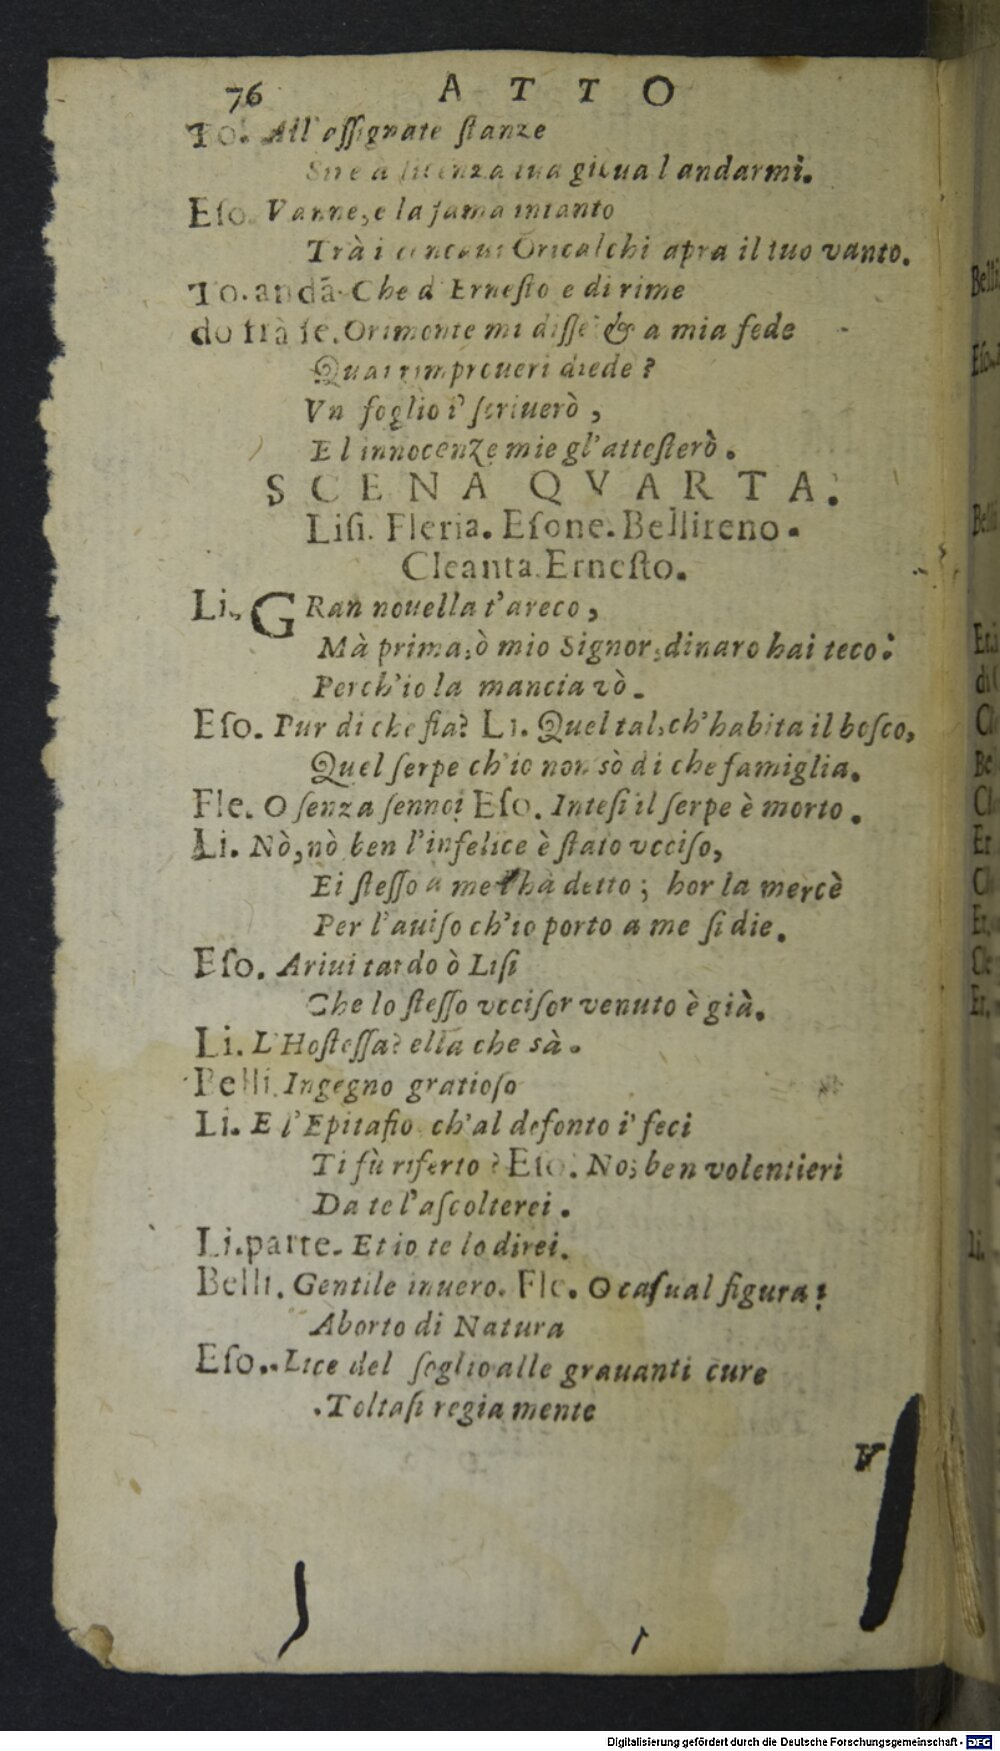 76 ATTO
To. All'assignate stanze
Sire a licenza tua giệual andarmi.
Eſo. Vanne, e la fama intanto
Trà i concaui Oricalchi apra il tuo vanto.
To. andā Che d Erneſto e di rime
do frà ſe. Orimonte mi diſſe & a mia fede
Quai rimproueri diede?
Vn foglio i' ſcriuerò,
E l innocenze mie gl'atteſterò.
SCENA QVARTA.
Liſi. Fleria. Eſone. Bellireno.
Cleanta. Erneſto.
Li. GRan nouella t'areco,
Mà prima, ò mio Signor, dinaro hai teco?
Perch'io la mancia vò.
Eſo. Pur di che fia? Li. Quel tal, ch'habita il boſco,
Quel ſerpe ch'io non sò di che famiglia.
Fle. O ſenza ſenno! Eſo. Inteſi il ſerpe è morto.
Li. Nò, nò ben l'infelice è ſtato vcciſo,
Ei ſteſſo a me l'hà detto; hor la mercè
Per l'auiſo ch'io porto a me ſi die.
Eſo. Ariui tardo ò Liſi
Che lo ſteſſo vcciſor venuto è già.
Li. L'Hoſteſſa? ella che sà.
Belli. Ingegno gratioſo
Li. E l'Epitafio ch'al defonto i' feci
Ti fù riferto? Eſo. No; ben volentieri
Da te l'aſcolterei.
Li. parte. Et io te lo direi.
Belli. Gentile inuero. Fle. O caſual figura!
Aborto di Natura
Eſo.. Lice del ſoglio alle grauanti cure
Toltaſi regia mente
Digitalisierung gefördert durch die Deutsche Forschungsgemeinschaft - DFG